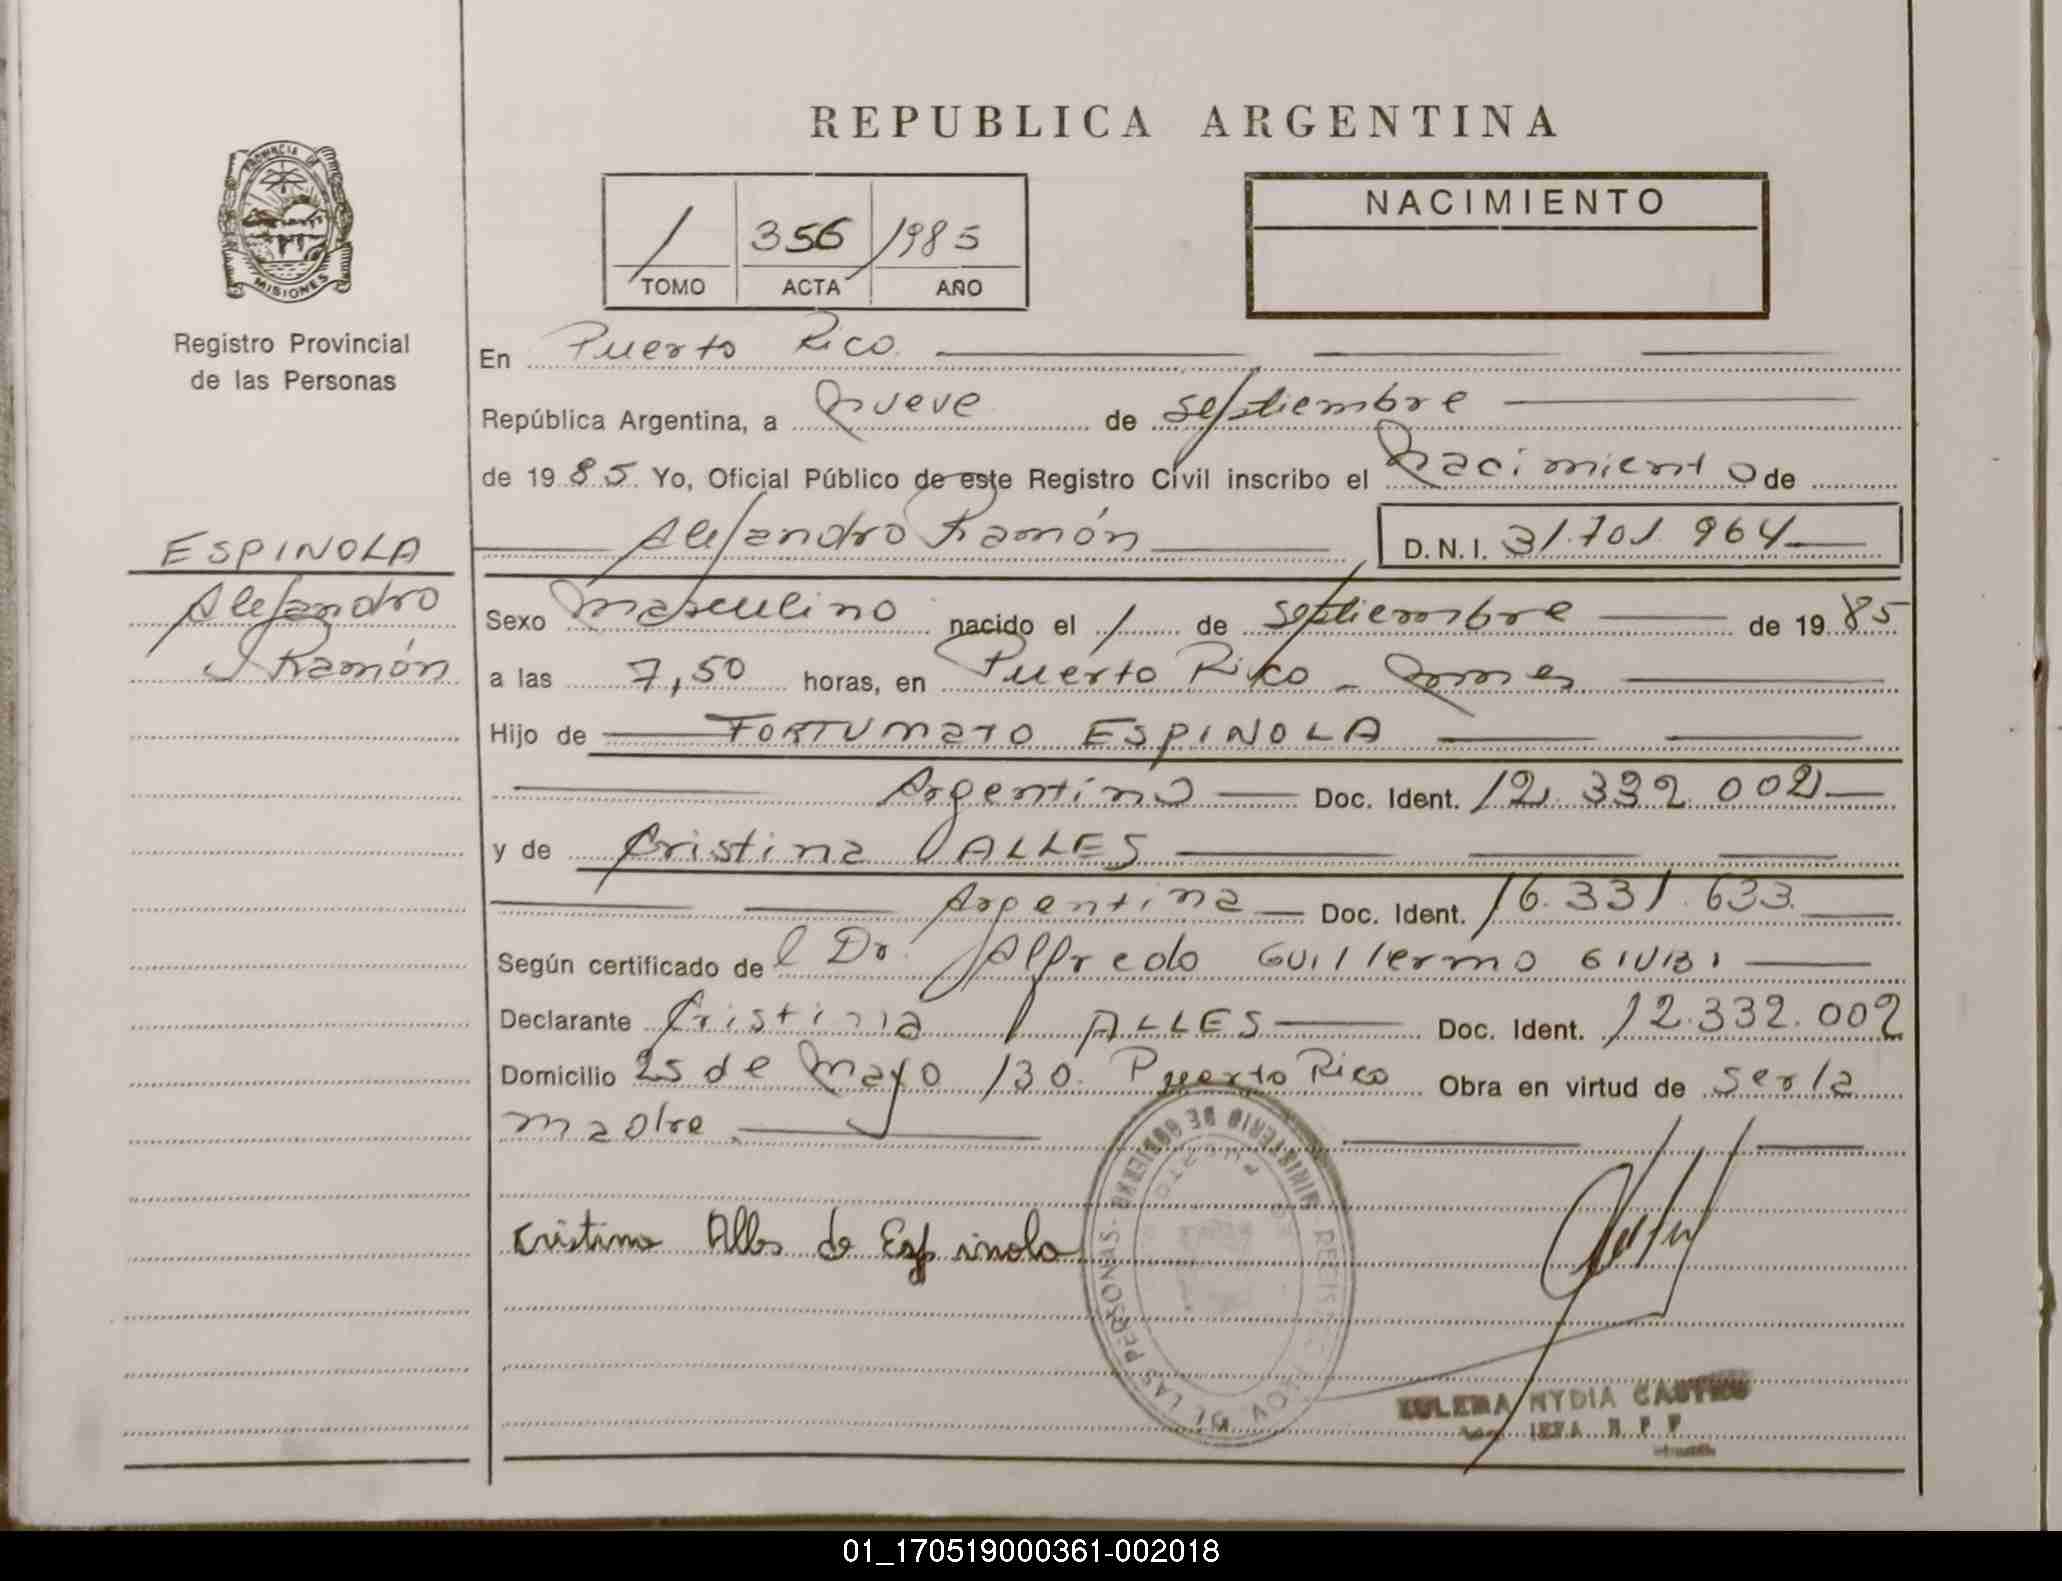 REPUBLICA ARGENTINA
PROVINCIA DE
MISIONES
Registro Provincial
de las Personas
1 356 1985
TOMO ACTA AÑO
NACIMIENTO
En Puerto Rico
República Argentina, a nueve de septiembre
de 1985. Yo, Oficial Público de este Registro Civil inscribo el Nacimiento de
ESPINOLA
Alejandro
Ramón
Alejandro Ramón D.N.I. 31.701.964
Sexo masculino nacido el 1 de septiembre de 1985
a las 7,50 horas, en Puerto Rico - mnes
Hijo de FORTUNATO ESPINOLA
Argentino Doc. Ident. 12.332.002
y de Cristina ALLES
Argentina Doc. Ident. 16.331.633
Según certificado del Dr. Alfredo Guillermo
Declarante Cristina ALLES Doc. Ident. 12.332.002
Domicilio 25 de Mayo 130 Puerto Rico Obra en virtud de ser la
madre
Cristina Alles de Espinola
MINISTERIO DE GOBIERNO
DE LAS PERSONAS
PUERTO
NYDIA CASTRO
01_170519000361-002018